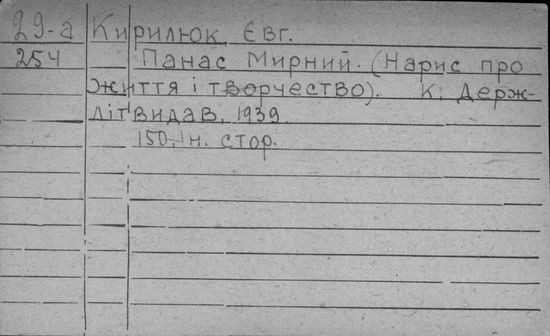 29-а Кирилюк, Євг.
254 Панас Мирний. (Нарис про
життя і творчество). К. Держ-
літвидав, 1939.
150, 1 н. стор.